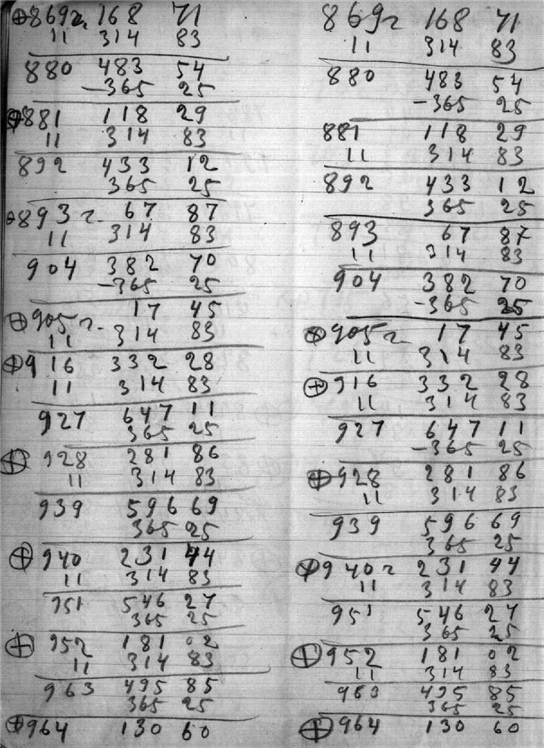 ⊕869г. 168 71
11 314 83
880 483 54
-365 25
⊕881 118 29
11 314 83
892 433 12
365 25
⊕893 г. 67 87
11 314 83
904 382 70
-365 25
⊕905 г. 17 45
11 314 83
⊕916 332 28
11 314 83
927 647 11
365 25
⊕928 281 86
11 314 83
939 596 69
365 25
⊕940 231 44
11 314 83
951 546 27
365 25
⊕952 181 02
11 314 83
963 495 85
365 25
⊕964 130 60
869г 168 71
11 314 83
880 483 54
-365 25
881 118 29
11 314 83
892 433 12
365 25
893 67 87
11 314 83
904 382 70
-365 25
⊕905г 17 45
11 314 83
⊕916 332 28
11 314 83
927 647 11
-365 25
⊕928 281 86
11 314 83
939 596 69
365 25
⊕940г 231 44
11 314 83
951 546 27
365 25
⊕952 181 02
11 314 83
495 85
365 25
⊕964 130 60